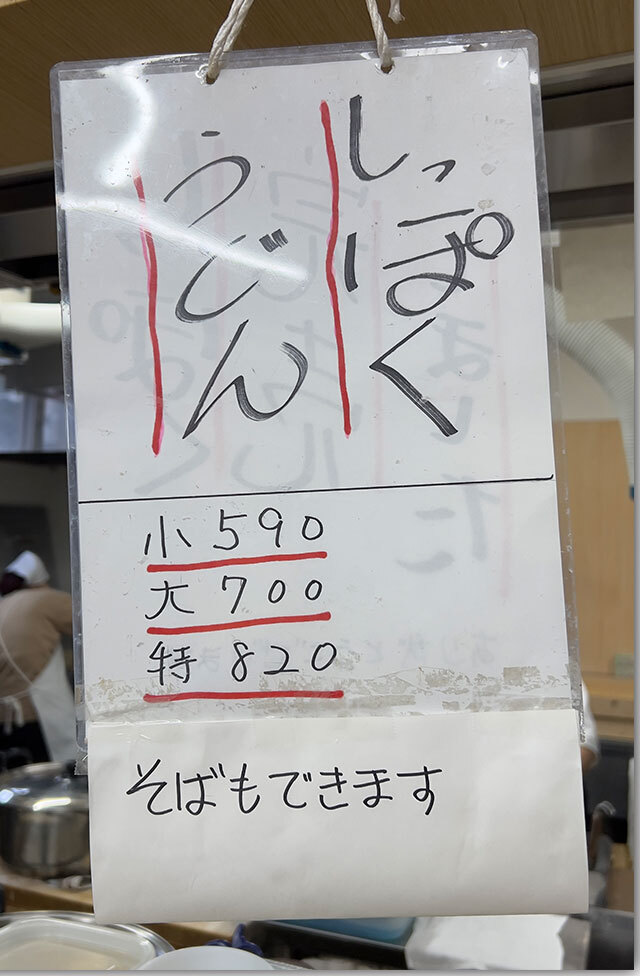 しっぽく
うどん
小 590
大 700
特 820
そばもできます